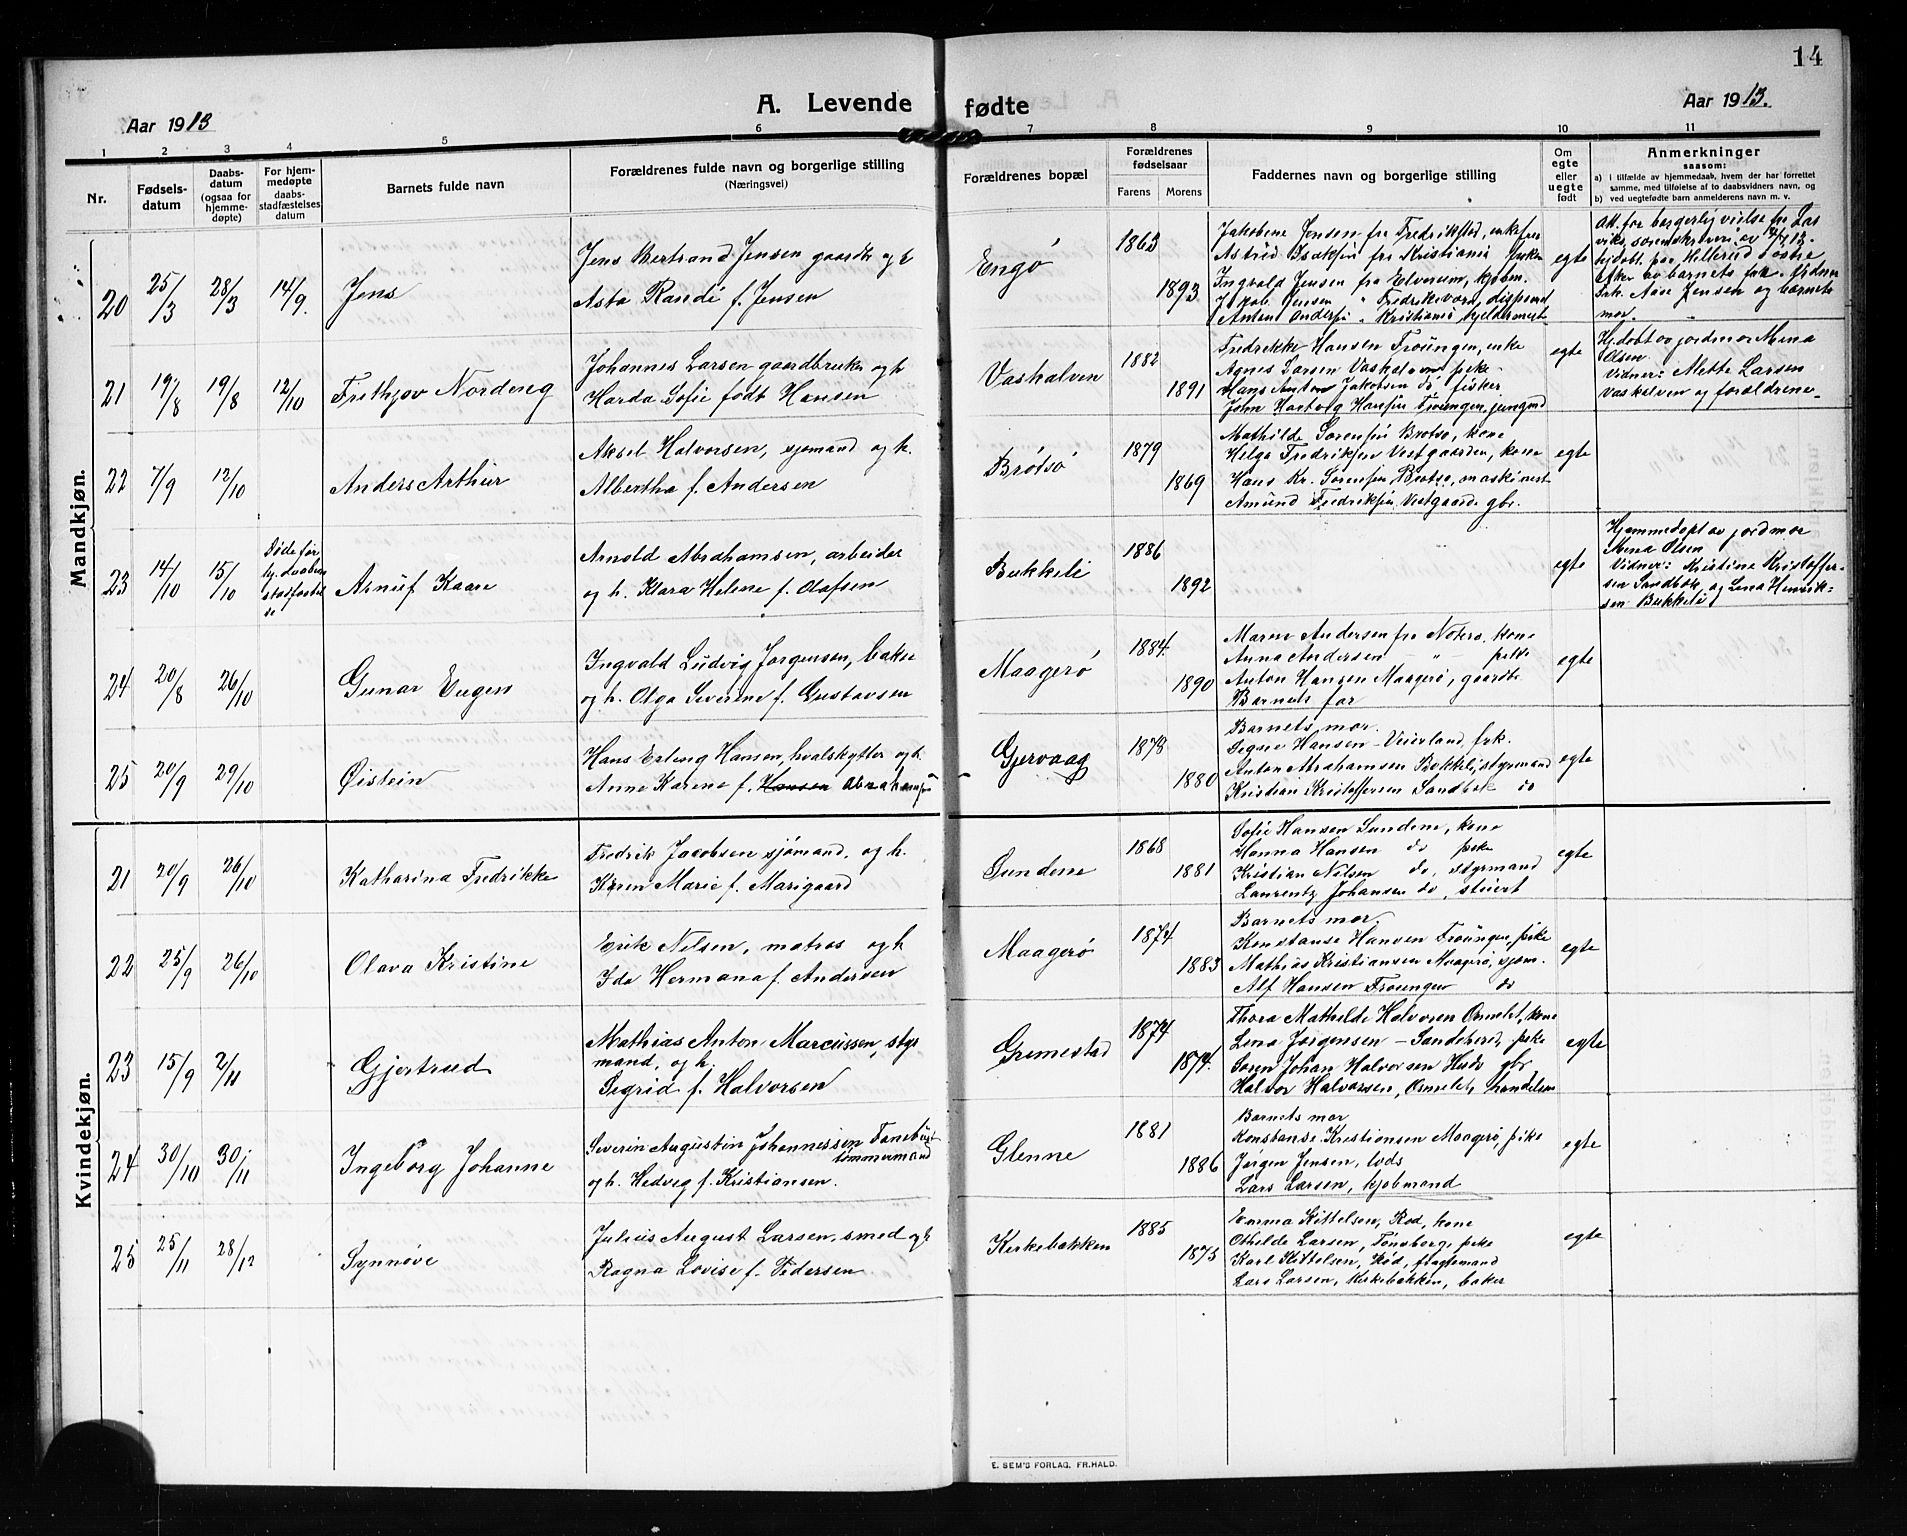 14
A. Levende fødte
Aar 1913
Aar 1913.
1 2 3 4 5 6 7 8 9 10 11
Nr.
Fødsels-
datum
Daabs-
datum
(ogsaa for
hjemme-
døpte)
For hjem-
medøpte
daabs-
stadfæstelses
datum
Barnets fulde navn
Forældrenes fulde navn og borgerlige stilling
(Næringsvei)
Forældrenes bopæl
Forældrenes
fødselsaar
Farens Morens
Faddernes navn og borgerlige stilling
Om
egte
eller
uegte
født
Anmerkninger
saasom:
a) i tilfælde av hjemmedaab, hvem der har forrettet
samme, med tilføielse af to daabsvidners navn, og
b) ved uegtefødte barn anmelderens navn m. v.
Mandkjøn.
20 25/3 28/3 14/9. Jens
Jens Bertrand Jensen gaardb og h
Asta Randi f. Jensen
Engø
1863
1893
Jakobine Jensen fra Fredrikstad, enkefrue
Astrid Isaksen fra Kristiania
Ingvald Jensen fra Elverum, kjøbm.
Jakob Jensen " Fredriksværn,
Anton Andersen " Kristiania
egte
Att. for borgerlig vielse fra
av 12/4 13.
Hj.døbt paa Hillerud
av barnets
frk. Aase Jensen og barnets
mor.
21 19/8 19/8 12/10 Frithjov Nordeng
Johannes Larsen gaardbruker og h
Harda Sofie født Hansen
Vaskalven
1882
1891
Fredrikke Hansen Trøungen, enke
Agnes Larsen Vaskalven pike
Hans Anton Jakobsen do fisker
John Hartvig Hansen Trøungen, jungmd
egte
Hj.døbt av jordmor Mina
Olsen
Vidner: Mette Larsen
Vaskalven og forældrene
22 7/9 12/10 Anders Arthur
Aksel Halvorsen, sjømand og h.
Albertha f. Andersen
Brøtsø
1879
1869
Mathilde Sørensen Brøtsø, kone
Helga Fredriksen Vestgaarden, kone
Hans Kr. Sørensen Brøtsø, maskinist
Amund Fredriksen Vestgaarden gbr.
egte
23 14/10 15/10 Døde før
hj. daabens
stadfæstel-
se
Arnuf Kaare
Arnold Abrahamsen, arbeider
og h. Klara Helene f. Olafsen
Bukkeli
1886
1892
egte
Hjemmedøpt av jordmor
Mina Olsen
Vidner: Kristine Kristoffer-
sen Sandbæk og Lina Henrik-
sen Bukkeli
24 20/8 26/10 Gunar Eugen
Ingvald Ludvig Jørgensen, baker
og h. Olga Severine f. Gustavsen
Maagerø
1884.
1890
Maren Andersen fra Nøterø kone
Anna Andersen — " — pike
Anton Hansen Maagerø, gaardb
Barnets far
egte
25 20/9 29/10 Øistein
Hans Erling Hansen, hvalskytter og h.
Anne Karene f. Hansen Abrahamsen
Gjervaag
1878
1880
Barnets mor.
Signe Hansen — Veierland, frk.
Anton Abrahamsen Bukkeli, styrmand
Kristian Kristoffersen Sandbæk do
egte
Kvindekjøn.
21 20/9 26/10 Katharina Fredrikke
Fredrik Jacobsen sjømand, og h.
Karen Marie f. Marigaard
Sundene
1868
1881
Sofie Hansen Sundene, kone
Hanna Hansen do pike
Kristian Nilsen do, styrmand
Laurentz Johansen do, stuert
egte
22 25/9 26/10 Olava Kristine
Erik Nelsen, matros og h
Ida Hermana f. Andersen
Maagerø
1874
1883
Barnets mor.
Konstanse Hansen Trøungen, pike
Mathias Kristiansen Maagerø, sjøm.
Alf Hansen Trøungen do
egte
23 15/9 2/11 Gjertrud
Mathias Anton Marcussen, styr
mand, og h.
Sigrid f. Halvorsen
Gremestad
1874
1874.
Thora Mathilde Halvorsen Ormelet, kone
Lina Jørgensen — Sandeherred, pike
Søren Johan Halvorsen gbr
Halvor Halvorsen, Ormelet, handelsm
egte
24 30/10 30/11 Ingeborg Johanne
Severin Augustin Johannessen
tømmermand
og h. Hedvig f. Kristiansen.
Glenne
1881
1886
Barnets mor
Konstanse Kristiansen Maagerø, pike
Jørgen Jensen, lods
Lars Larsen, kjøbmand
egte
25 25/11 28/12 Synnøve
Julius August Larsen, smed og h
Ragna Lovise f. Pedersen
Kirkebakken
1885
1875
Emma Kittelsen, Rød, kone
Othilde Larsen, Tønsberg, pike
Karl Kittelsen, Rød, fragtemand
Lars Larsen, Kirkebakken, baker
egte
E. SEM'S FORLAG, FR.HALD.